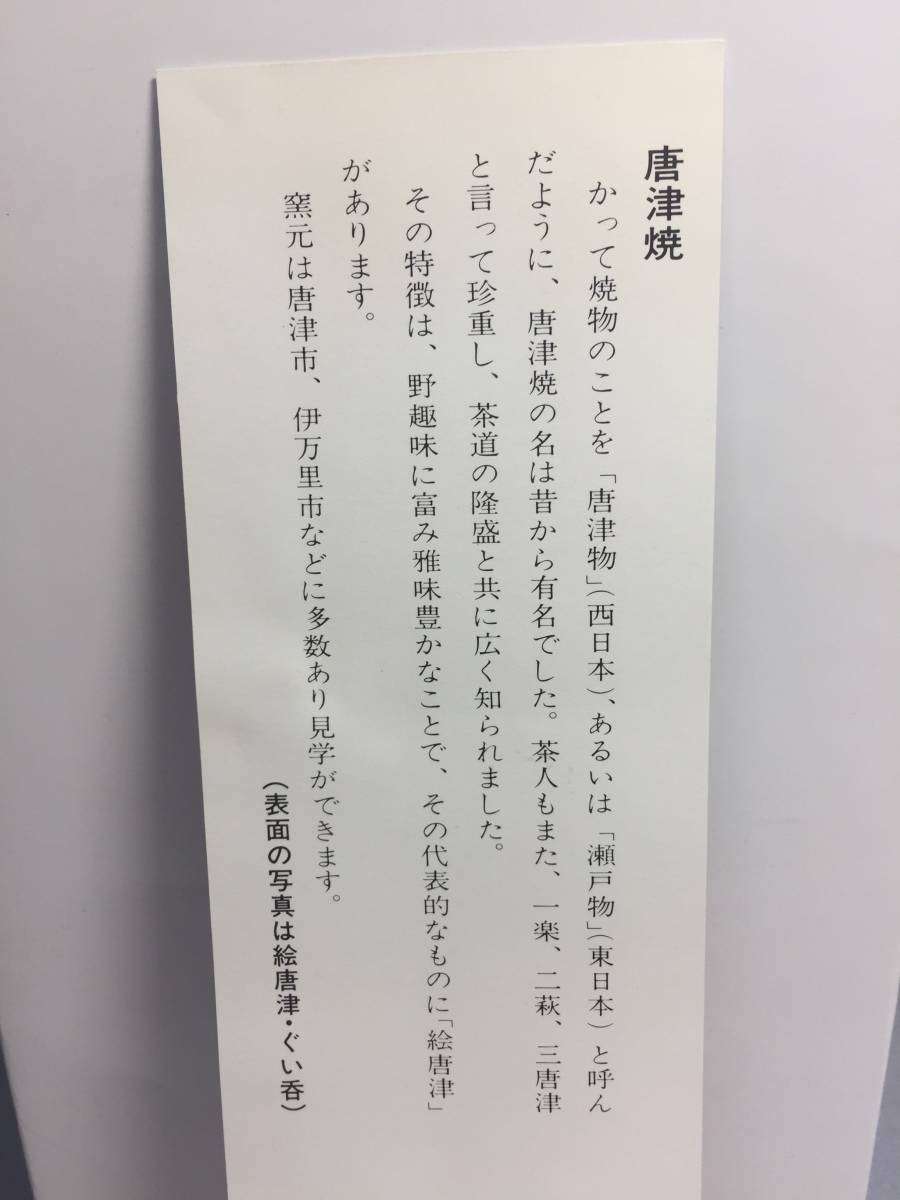 唐津焼
かって焼物のことを「唐津物」(西日本)、あるいは「瀬戸物」(東日本)と呼ん
だように、唐津焼の名は昔から有名でした。茶人もまた、一楽、二萩、三唐津
と言って珍重し、茶道の隆盛と共に広く知られました。
その特徴は、野趣味に富み雅味豊かなことで、その代表的なものに「絵唐津」
があります。
窯元は唐津市、伊万里市などに多数あり見学ができます。
(表面の写真は絵唐津・ぐい呑)